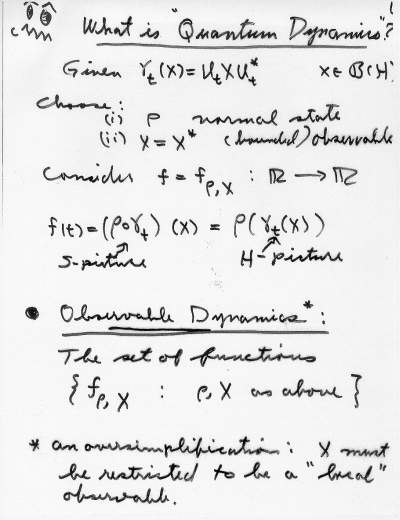 What is "Quantum Dynamics"?
Given γ_t(X) = U_t X U_t^*   X ∈ B(H)
Choose:
(i) ρ normal state
(ii) X = X^* (bounded) observable
Consider f = f_{ρ,X} : ℝ → ℝ
f(t) = (ρ∘γ_t)(X) = ρ(γ_t(X))
S-picture   H-picture
• Observable Dynamics*:
The set of functions
{ f_{ρ,X} : ρ, X as above }
* an oversimplification: X must
be restricted to be a "local"
observable.